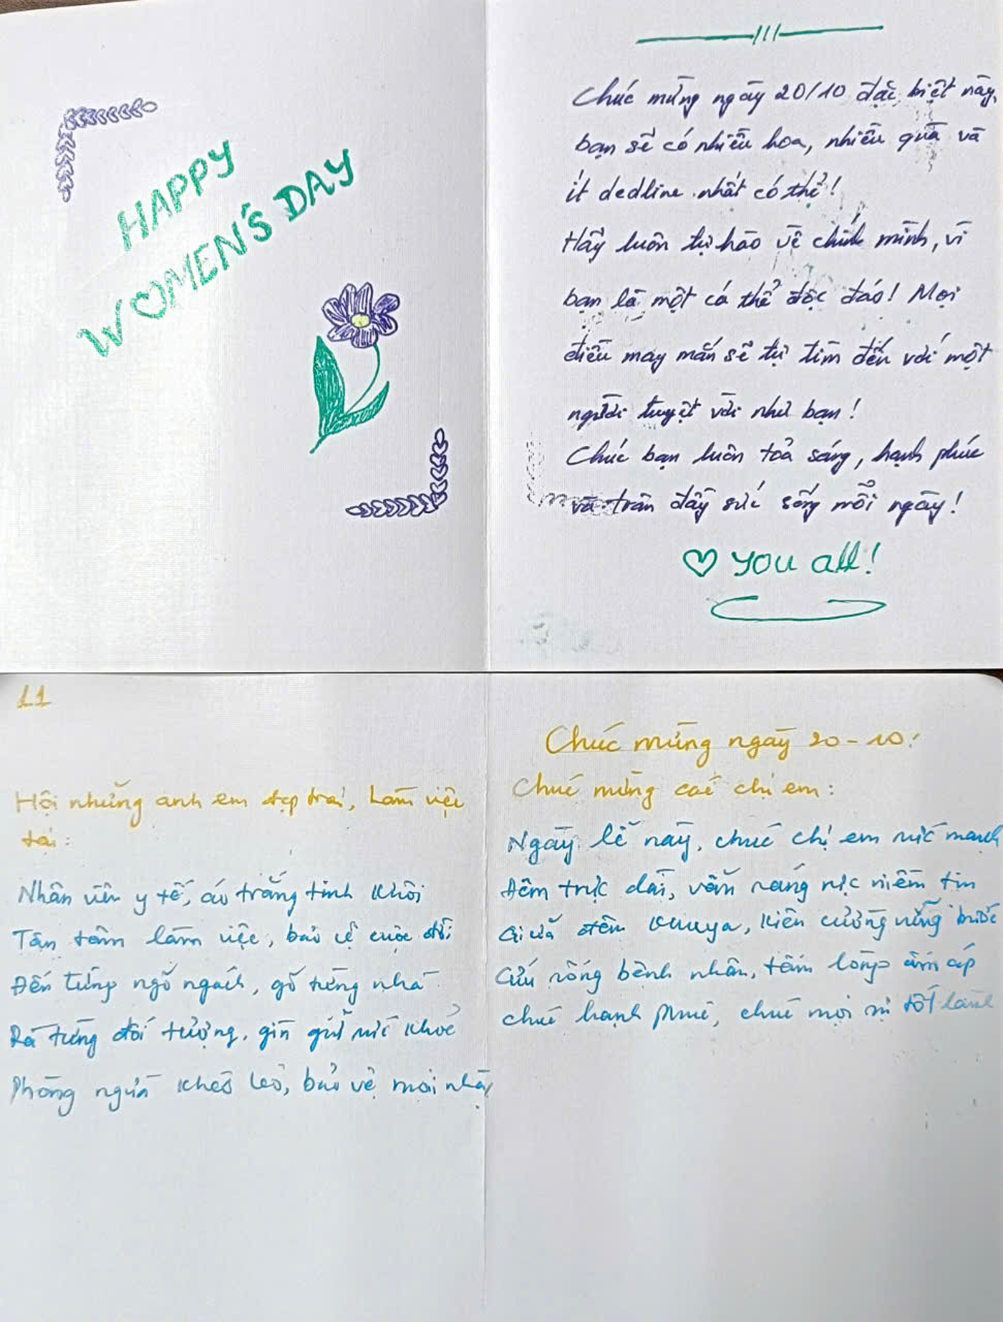 HAPPY
WOMEN'S DAY
Chúc mừng ngày 20/10 đặc biệt này,
bạn sẽ có nhiều hoa, nhiều quà và
ít dedline nhất có thể!
Hãy luôn tự hào về chính mình, vì
bạn là một cá thể độc đáo! Mọi
điều may mắn sẽ tự tìm đến với một
người tuyệt vời như bạn!
Chúc bạn luôn toả sáng, hạnh phúc
và tràn đầy sức sống mỗi ngày!
♡ you all!
11
Hội những anh em đẹp trai, làm việc
tại:
Nhân viên y tế, áo trắng tinh khôi
Tận tâm làm việc, bảo vệ cuộc đời
Đến từng ngõ ngách, gõ từng nhà
Rà từng đối tượng, gìn giữ sức khoẻ
Phòng ngừa khéo léo, bảo vệ mọi nhà,
Chúc mừng ngày 20-10!
Chúc mừng các chị em:
Ngày lễ này, chúc chị em sức mạnh
Đêm trực dài, vẫn sáng rực niềm tin
Giữa đêm khuya, kiên cường vững bước
Cứu sống bệnh nhân, tấm lòng ấm áp
Chúc hạnh phúc, chúc mọi sự tốt lành